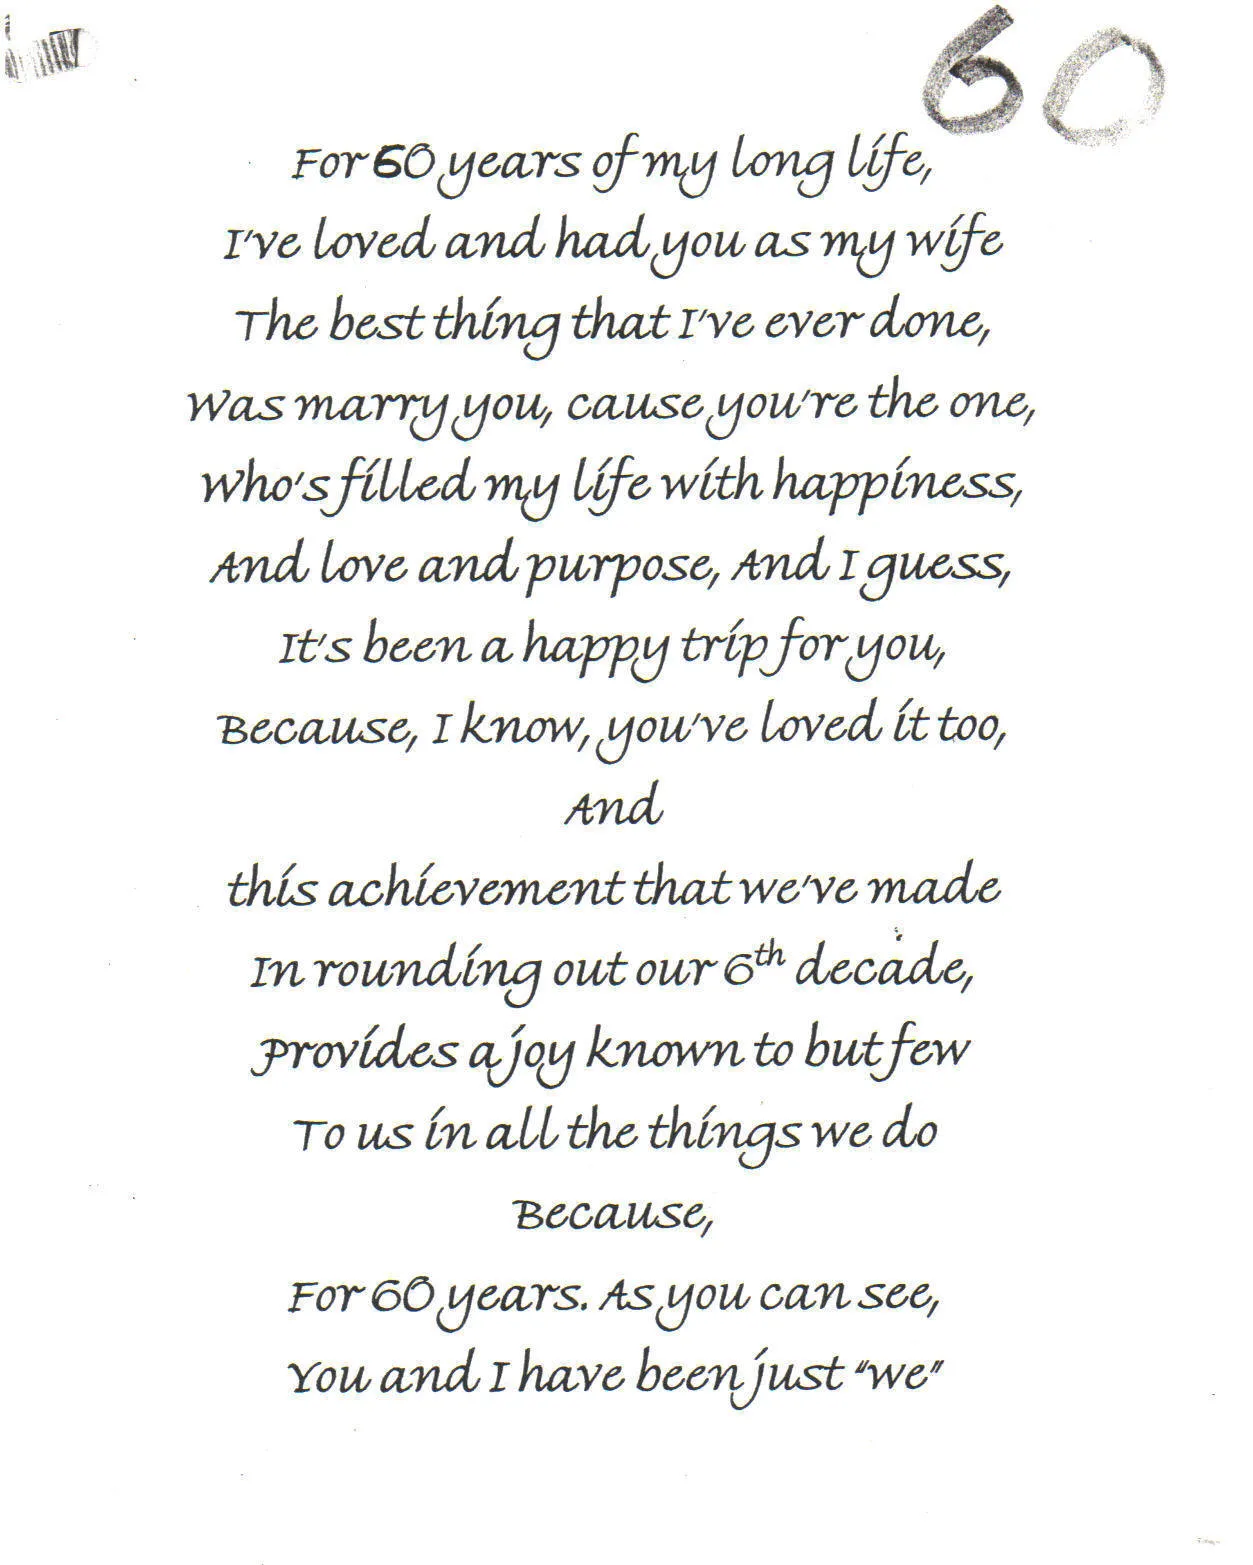 60
For 60 years of my long life,
I've loved and had you as my wife
The best thing that I've ever done,
Was marry you, cause you're the one,
Who's filled my life with happiness,
And love and purpose, And I guess,
It's been a happy trip for you,
Because, I know, you've loved it too,
And
this achievement that we've made
In rounding out our 6th decade,
Provides a joy known to but few
To us in all the things we do
Because,
For 60 years. As you can see,
You and I have been just "we"